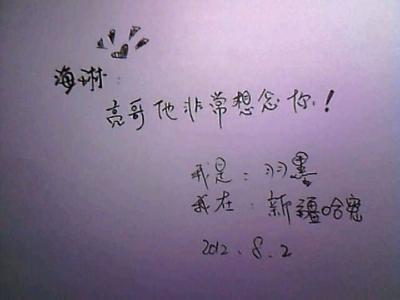 海琳：
亮哥他非常想念你！
我是：羽墨
我在：新疆哈密
2012.8.2